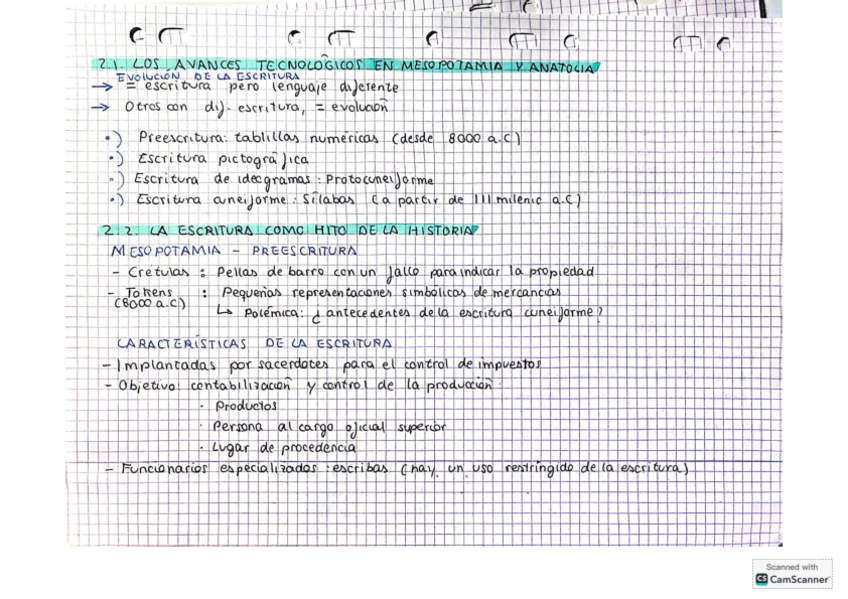 2.1. LOS AVANCES TECNOLÓGICOS EN MESOPOTAMIA Y ANATOLIA
EVOLUCIÓN DE LA ESCRITURA
→ = escritura pero lenguaje diferente
→ Otros con dif. escritura, = evolución
•) Preescritura: tablillas numéricas (desde 8000 a.C)
•) Escritura pictográfica
•) Escritura de ideogramas: Protocuneiforme
•) Escritura cuneiforme: Sílabas (a partir de III milenio a.C)
2.2. LA ESCRITURA COMO HITO DE LA HISTORIA
MESOPOTAMIA - PREESCRITURA
- Crétulas : Pellas de barro con un fallo para indicar la propiedad
- Tokens : Pequeñas representaciones simbólicas de mercancías
(8000 a.C) ↳ Polémica: ¿antecedentes de la escritura cuneiforme?
CARACTERÍSTICAS DE LA ESCRITURA
- Implantadas por sacerdotes para el control de impuestos
- Objetivo: contabilización y control de la producción
· Productos
· Persona al cargo oficial superior
· Lugar de procedencia
- Funcionarios especializados: escribas (hay un uso restringido de la escritura)
Scanned with
CS CamScanner